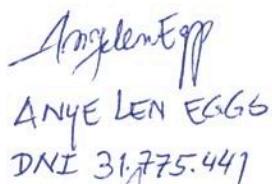 AngelenEgp
ANYE LEN EGGS
DNI 31.775.441